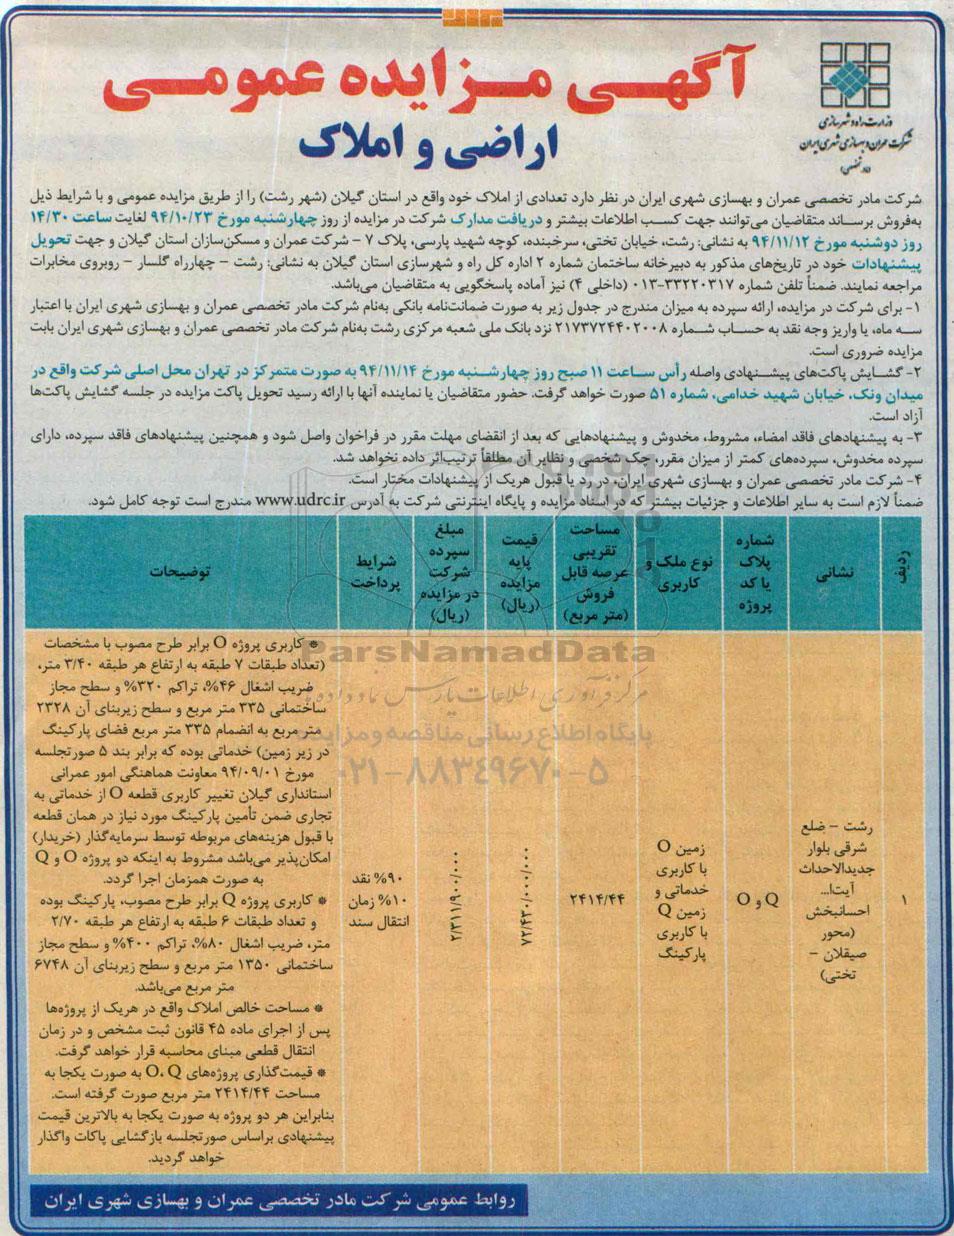 آگهی مزایده عمومی
اراضی و املاک
وزارت راه و شهرسازی
شرکت عمران و بهسازی شهری ایران
(مادر تخصصی)
شرکت مادر تخصصی عمران و بهسازی شهری ایران در نظر دارد تعدادی از املاک خود واقع در استان گیلان (شهر رشت) را از طریق مزایده عمومی و با شرایط ذیل
به‌فروش برساند متقاضیان می‌توانند جهت کسب اطلاعات بیشتر و دریافت مدارک شرکت در مزایده از روز چهارشنبه مورخ ۹۴/۱۰/۲۳ لغایت ساعت ۱۴/۳۰
روز دوشنبه مورخ ۹۴/۱۱/۱۲ به نشانی: رشت، خیابان تختی، سرخبنده، کوچه شهید پارسی، پلاک ۷ - شرکت عمران و مسکن‌سازان استان گیلان و جهت تحویل
پیشنهادات خود در تاریخ‌های مذکور به دبیرخانه ساختمان شماره ۲ اداره کل راه و شهرسازی استان گیلان به نشانی: رشت - چهارراه گلسار - روبروی مخابرات
مراجعه نمایند. ضمناً تلفن شماره ۳۳۲۲۰۳۱۷-۰۱۳ (داخلی ۴) نیز آماده پاسخگویی به متقاضیان می‌باشد.
۱- برای شرکت در مزایده، ارائه سپرده به میزان مندرج در جدول زیر به صورت ضمانت‌نامه بانکی به‌نام شرکت مادر تخصصی عمران و بهسازی شهری ایران با اعتبار
سه ماه، یا واریز وجه نقد به حساب شماره ۲۱۷۳۷۲۴۴۰۲۰۰۸ نزد بانک ملی شعبه مرکزی رشت به‌نام شرکت مادر تخصصی عمران و بهسازی شهری ایران بابت
مزایده ضروری است.
۲- گشایش پاکت‌های پیشنهادی واصله رأس ساعت ۱۱ صبح روز چهارشنبه مورخ ۹۴/۱۱/۱۴ به صورت متمرکز در تهران محل اصلی شرکت واقع در
میدان ونک، خیابان شهید خدامی، شماره ۵۱ صورت خواهد گرفت. حضور متقاضیان یا نماینده آنها با ارائه رسید تحویل پاکت مزایده در جلسه گشایش پاکت‌ها
آزاد است.
۳- به پیشنهادهای فاقد امضاء، مشروط، مخدوش و پیشنهادهایی که بعد از انقضای مهلت مقرر در فراخوان واصل شود و همچنین پیشنهادهای فاقد سپرده، دارای
سپرده مخدوش، سپرده‌های کمتر از میزان مقرر، چک شخصی و نظایر آن مطلقاً ترتیب‌اثر داده نخواهد شد.
۴- شرکت مادر تخصصی عمران و بهسازی شهری ایران، در رد یا قبول هریک از پیشنهادات مختار است.
ضمناً لازم است به سایر اطلاعات و جزئیات بیشتر که در اسناد مزایده و پایگاه اینترنتی شرکت به آدرس www.udrc.ir مندرج است توجه کامل شود.
ردیف
نشانی
شماره
پلاک
یا کد
پروژه
نوع ملک و
کاربری
مساحت
تقریبی
عرصه قابل
فروش
(متر مربع)
قیمت
پایه
مزایده
(ریال)
مبلغ
سپرده
شرکت
در مزایده
(ریال)
شرایط
پرداخت
توضیحات
۱
رشت - ضلع
شرقی بلوار
جدیدالاحداث
آیت‌ا...
احسانبخش
(محور
صیقلان -
تختی)
O و Q
زمین O
با کاربری
خدماتی و
زمین Q
با کاربری
پارکینگ
۲۴۱۴/۴۴
۷۲/۴۳۰/۰۰۰/۰۰۰
۲/۳۱۱/۹۰۰/۰۰۰
۹۰% نقد
۱۰% زمان
انتقال سند
* کاربری پروژه O برابر طرح مصوب با مشخصات
(تعداد طبقات ۷ طبقه به ارتفاع هر طبقه ۳/۴۰ متر،
ضریب اشغال ۴۶%، تراکم ۳۲۰% و سطح مجاز
ساختمانی ۳۳۵ متر مربع و سطح زیربنای آن ۲۳۲۸
متر مربع به انضمام ۳۳۵ متر مربع فضای پارکینگ
در زیر زمین) خدماتی بوده که برابر بند ۵ صورتجلسه
مورخ ۹۴/۰۹/۰۱ معاونت هماهنگی امور عمرانی
استانداری گیلان تغییر کاربری قطعه O از خدماتی به
تجاری ضمن تأمین پارکینگ مورد نیاز در همان قطعه
با قبول هزینه‌های مربوطه توسط سرمایه‌گذار (خریدار)
امکان‌پذیر می‌باشد مشروط به اینکه دو پروژه O و Q
به صورت همزمان اجرا گردد.
* کاربری پروژه Q برابر طرح مصوب، پارکینگ بوده
و تعداد طبقات ۶ طبقه به ارتفاع هر طبقه ۲/۷۰
متر، ضریب اشغال ۸۰%، تراکم ۴۰۰% و سطح مجاز
ساختمانی ۱۳۵۰ متر مربع و سطح زیربنای آن ۶۷۴۸
متر مربع می‌باشد.
* مساحت خالص املاک واقع در هریک از پروژه‌ها
پس از اجرای ماده ۴۵ قانون ثبت مشخص و در زمان
انتقال قطعی مبنای محاسبه قرار خواهد گرفت.
* قیمت‌گذاری پروژه‌های O، Q به صورت یکجا به
مساحت ۲۴۱۴/۴۴ متر مربع صورت گرفته است.
بنابراین هر دو پروژه به صورت یکجا به بالاترین قیمت
پیشنهادی براساس صورتجلسه بازگشایی پاکات واگذار
خواهد گردید.
ParsNamadData
مرکز فرآوری اطلاعات پارس نماد داده‌ها
پایگاه اطلاع رسانی مناقصه و مزایده
۰۲۱-۸۸۳۴۹۶۷۰-۵
روابط عمومی شرکت مادر تخصصی عمران و بهسازی شهری ایران